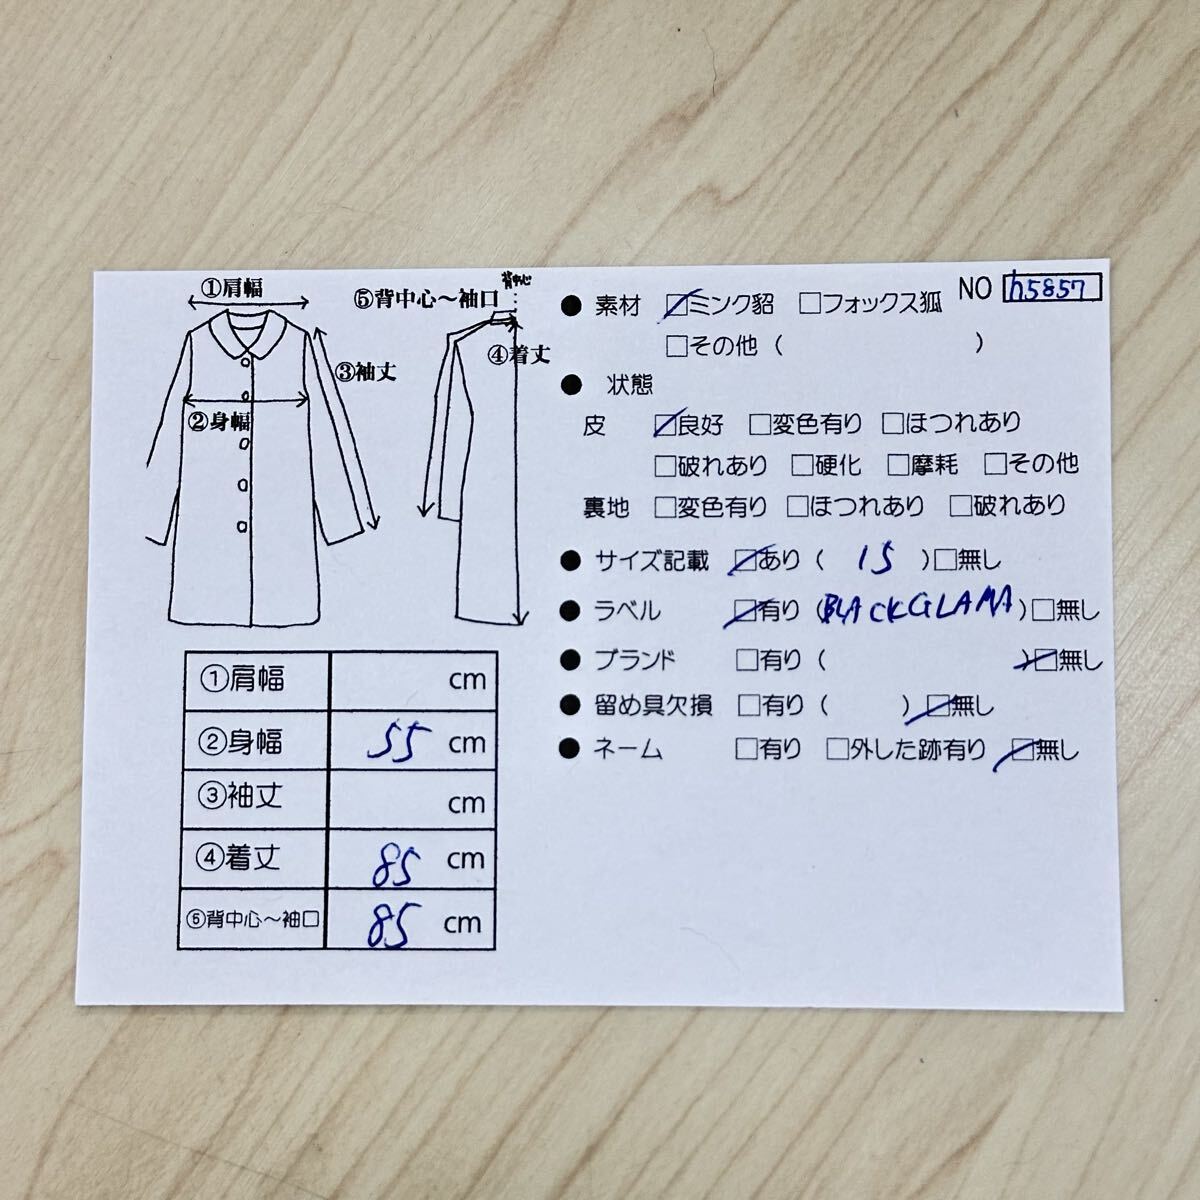 ①肩幅
⑤背中心～袖口
背中心
③袖丈
④着丈
②身幅
NO h5857
● 素材 ☑ミンク貂 □フォックス狐
□その他 ( )
● 状態
皮 ☑良好 □変色有り □ほつれあり
□破れあり □硬化 □摩耗 □その他
裏地 □変色有り □ほつれあり □破れあり
● サイズ記載 ☑あり ( 15 ) □無し
● ラベル ☑有り (BLACKGLAMA) □無し
● ブランド □有り ( ) ☑無し
● 留め具欠損 □有り ( ) ☑無し
● ネーム □有り □外した跡有り ☑無し
①肩幅 cm
②身幅 55 cm
③袖丈 cm
④着丈 85 cm
⑥背中心～袖口 85 cm